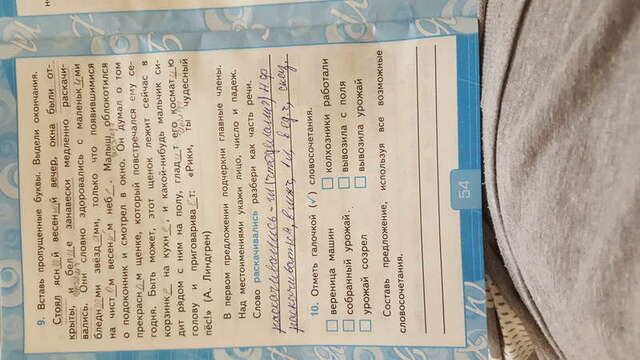 9. Вставь пропущенные буквы. Выдели окончания.
Стоял ясный весенний вечер, окна были от-
крыты, и белые занавески медленно раскачи-
вались. Они словно здоровались с маленькими
бледными звездами, только что появившимися
на чистом весеннем небе. Малыш облокотился
о подоконник и смотрел в окно. Он думал о том
прекрасном щенке, который повстречался ему се-
годня. Быть может, этот щенок лежит сейчас в
корзинке на кухне, и какой-нибудь мальчик си-
дит рядом с ним на полу, гладит его косматую
голову и приговаривает: «Рикки, ты чудесный
пёс!» (А. Линдгрен)
В первом предложении подчеркни главные члены.
Над местоимениями укажи лицо, число и падеж.
Слово раскачивались разбери как часть речи.
раскачивались - гл. (что делали?) Н.ф.
10. Отметь галочкой (✓) словосочетания.
вереница машин
собранный урожай
урожай созрел
колхозники работали
вывозила с поля
вывозила урожай
Составь предложение, используя все возможные
словосочетания.
54